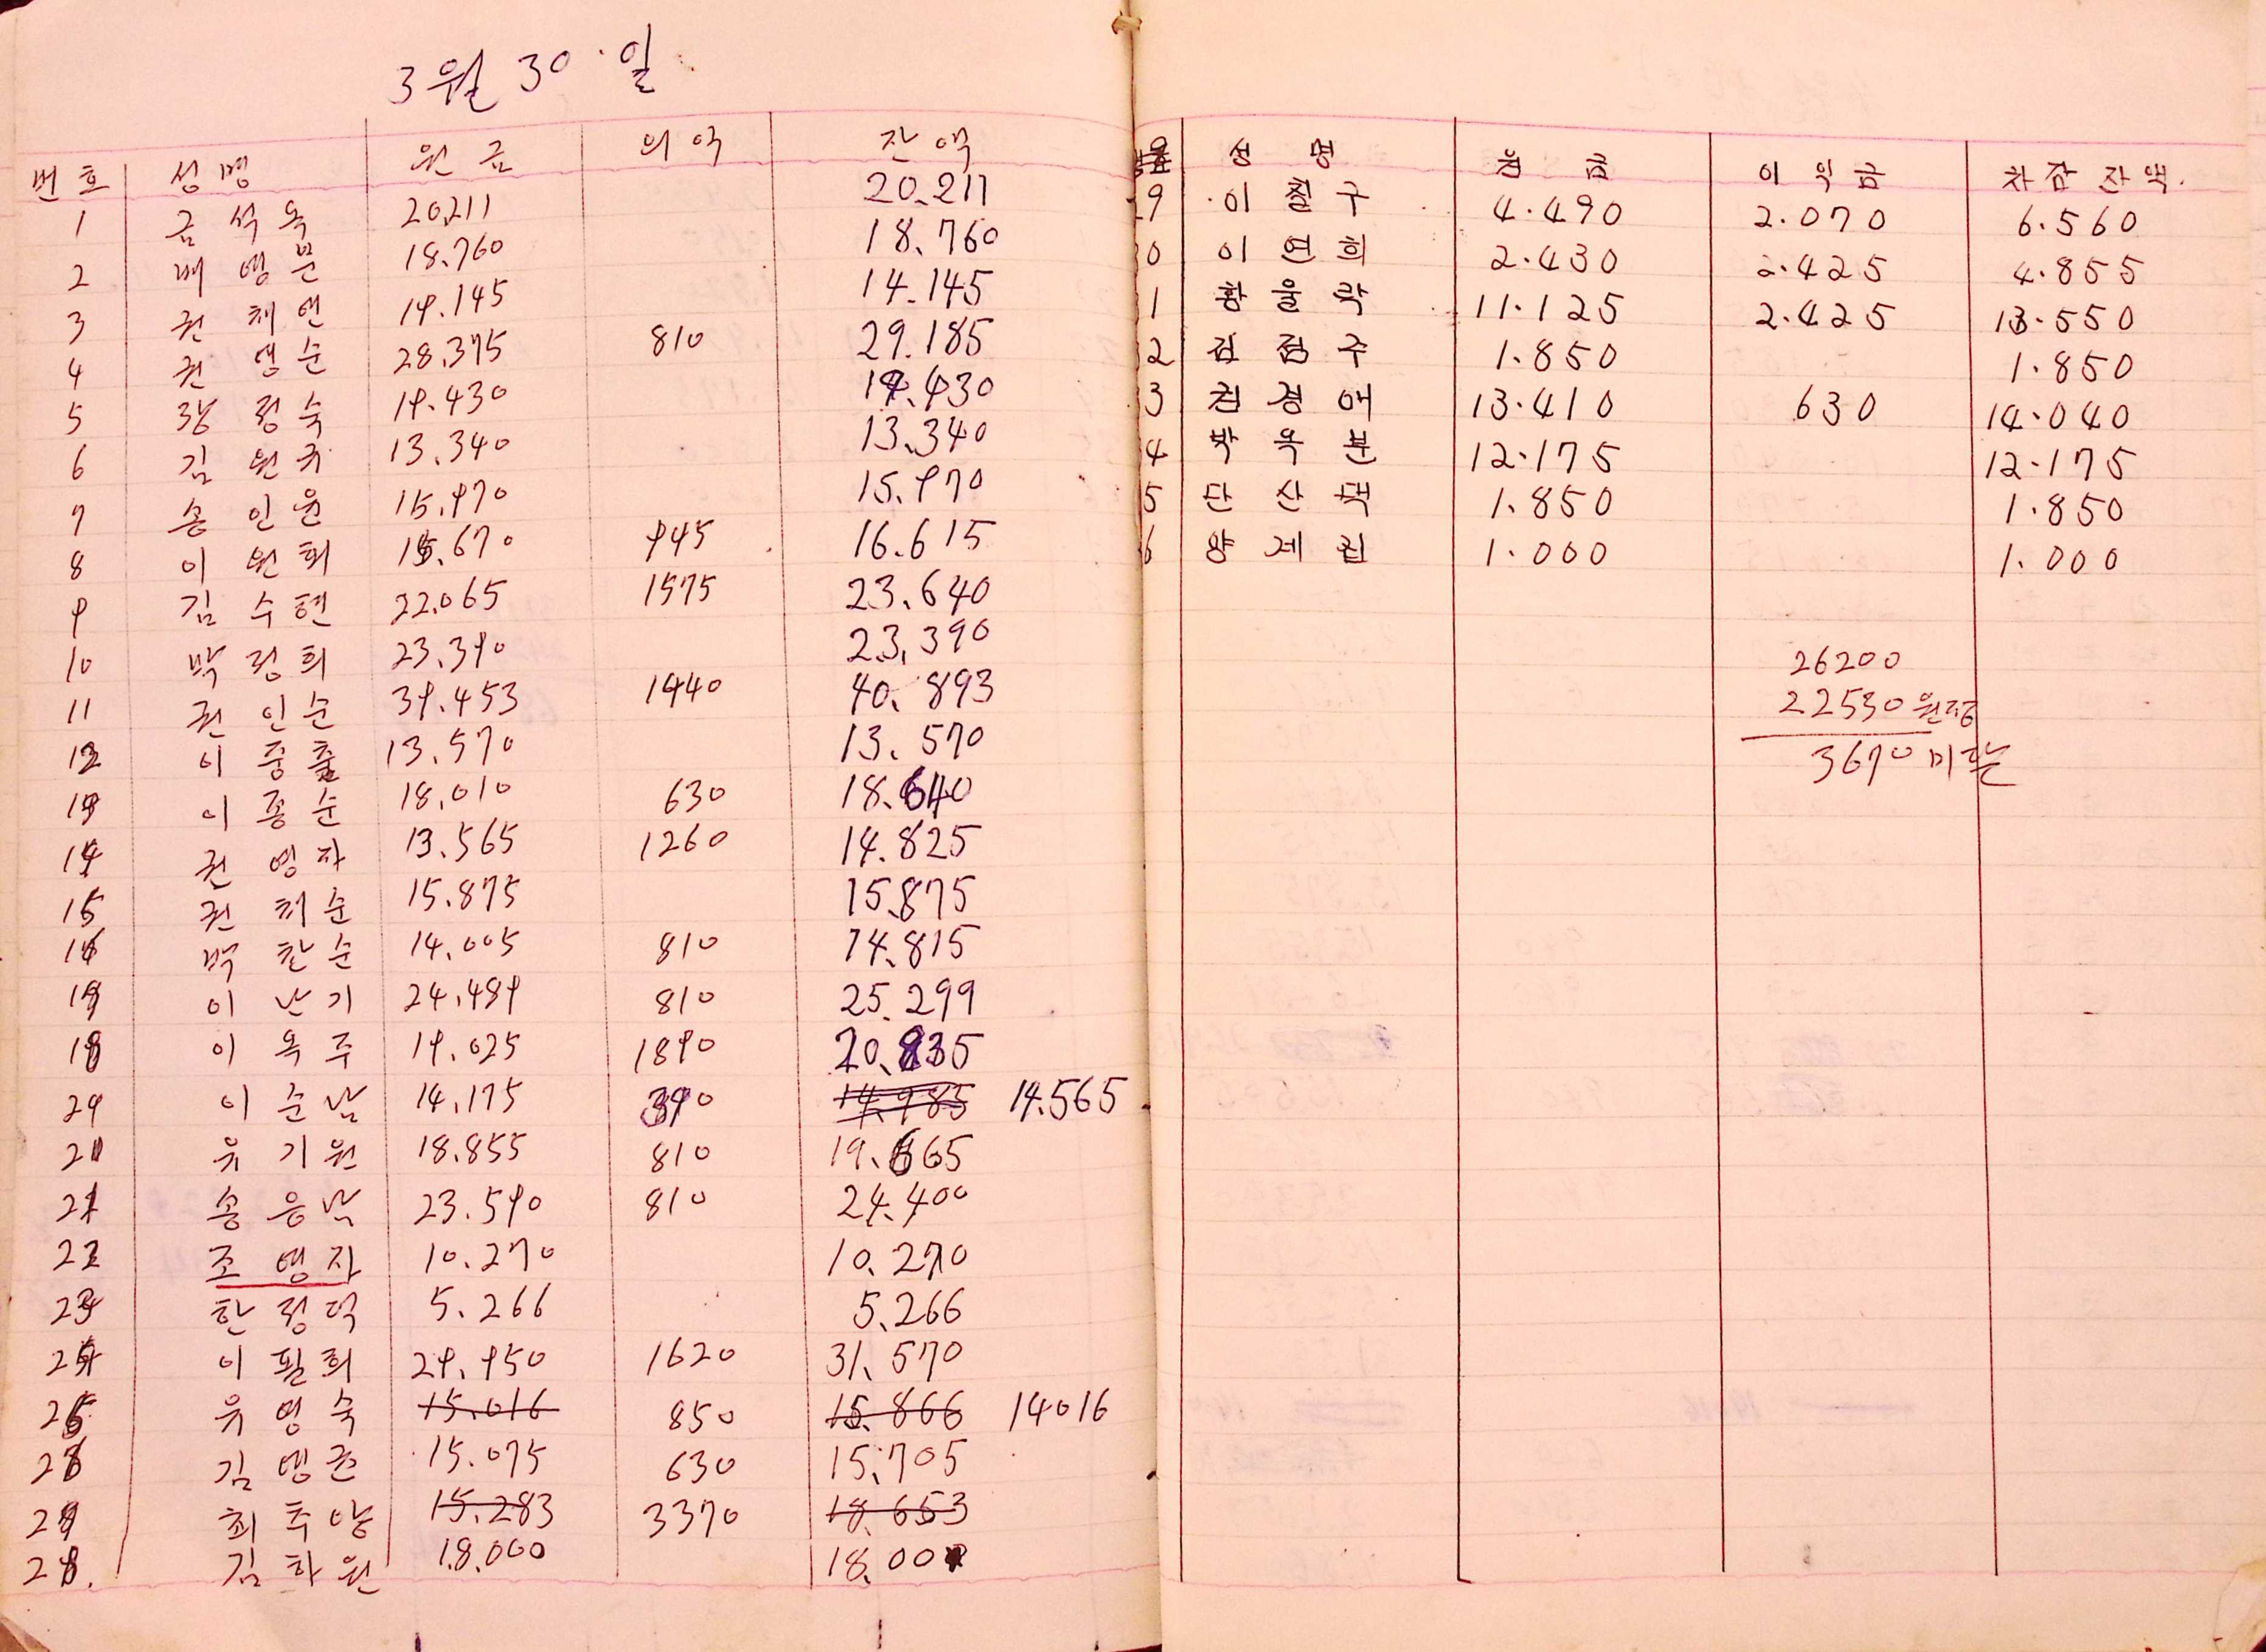 3월 30일
번호 성명 원금 의역 잔액
1 금석옥 20,211 20.211
2 배영분 18.760 18.760
3 권채연 14.145 14.145
4 권영순 28.375 810 29.185
5 정숙 14.430 14.430
6 김원규 13.340 13.340
7 송인윤 15.970 15.970
8 이원희 15.670 945 16.615
9 김수현 22.065 1575 23.640
10 박정희 23.390 23.390
11 권인순 39.453 1440 40.893
12 이중출 13.570 13.570
13 이종순 18.010 630 18.640
14 권영자 13.565 1260 14.825
15 권처순 15.875 15.875
16 박찬순 14.005 810 14.815
이난기 24.489 810 25.299
18 이옥주 19.025 1890 20.835
이순남 14.175 390 14.985 14.565
유기원 18.855 810 19.665
21 송응낙 23.590 810 24.400
22 조영자 10.270 10.270
한정덕 5.266 5.266
이필희 29.950 1620 31.570
유영숙 15.016 850 15.866 14016
김영군 15.075 630 15.705
최추양 15.283 3370 18.653
28. 김하원 18.000 18.000
성명 원금 이익금 차잠잔액.
9 이칠구 4.490 2.070 6.560
0 이연희 2.430 2.425 4.855
1 황을락 11.125 2.425 13.550
2 김점주 1.850 1.850
3 권경애 13.410 630 14.040
4 박옥분 12.175 12.175
5 단산댁 1.850 1.850
6 양계집 1.000 1.000
26200
22530 원정
3670 미달